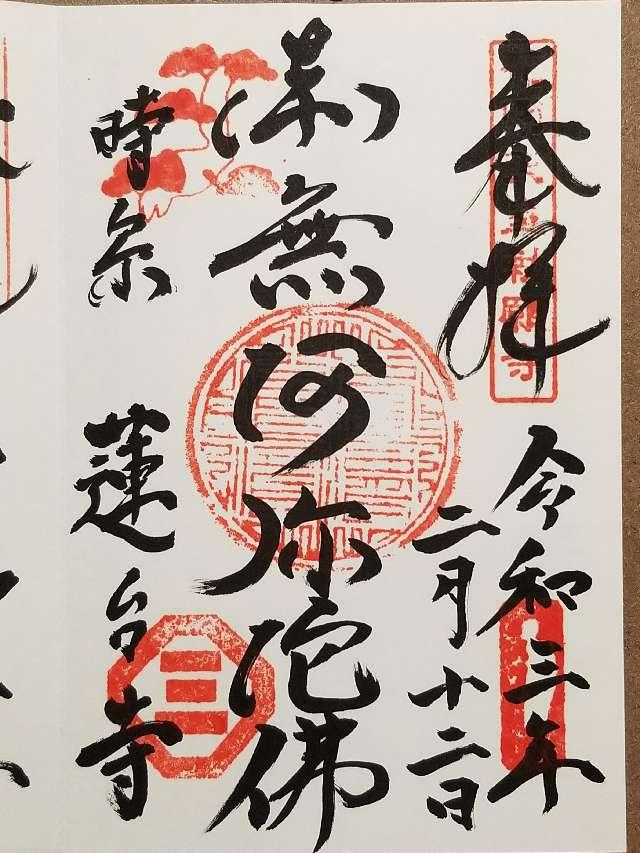 奉拝
令和三年
二月十二日
南無阿弥陀佛
時宗 蓮台寺